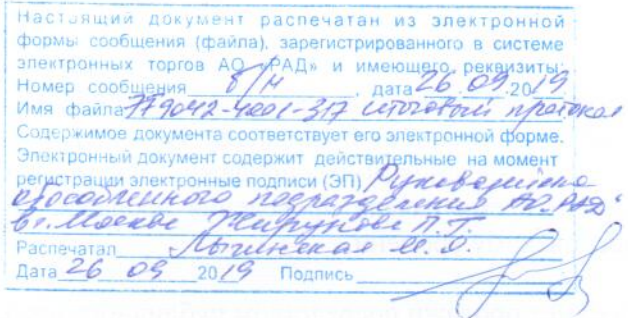 Настоящий документ распечатан из электронной
формы сообщения (файла), зарегистрированного в системе
электронных торгов АО «РАД» и имеющего реквизиты:
Номер сообщения б/н, дата 26.09.2019
Имя файла 779042-4001-317 итоговый протокол
Содержимое документа соответствует его электронной форме.
Электронный документ содержит действительные на момент
регистрации электронные подписи (ЭП) Руководителя
обособленного подразделения АО "РАД"
в г. Москве П.Г.
Распечатал
Дата 26 09 2019 Подпись